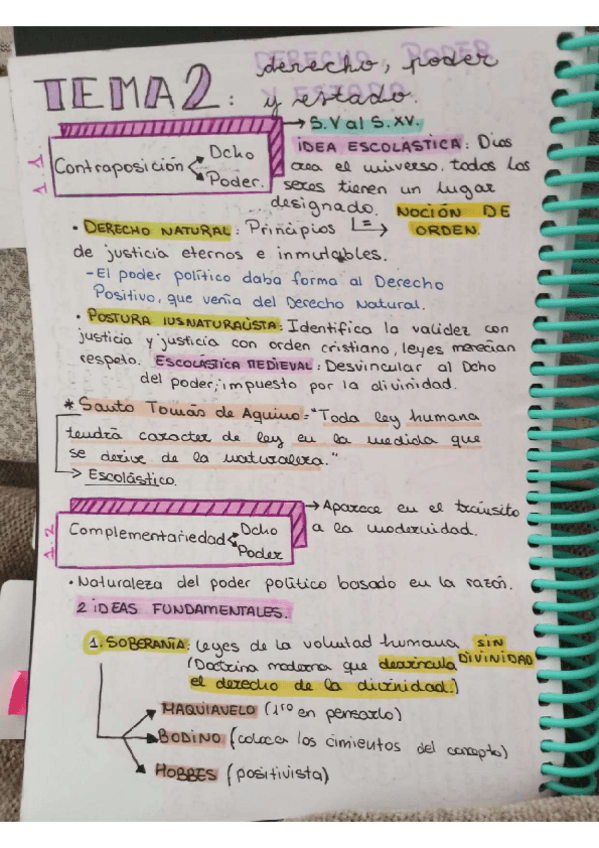 TEMA 2: derecho, poder
y estado.
1.1. Contraposición Dcho
Poder.
→ S.V al S.XV.
IDEA ESCOLÁSTICA: Dios
crea el universo, todos los
seres tienen un lugar
designado. NOCIÓN DE
ORDEN.
• DERECHO NATURAL: Principios
de justicia eternos e inmutables.
- El poder político daba forma al Derecho
Positivo, que venía del Derecho Natural.
• POSTURA IUSNATURALISTA: Identifica la validez con
justicia y justicia con orden cristiano, leyes merecían
respeto. ESCOLÁSTICA MEDIEVAL: Desvincular al Dcho
del poder, impuesto por la divinidad.
* Santo Tomás de Aquino = "Toda ley humana
tendrá caracter de ley en la medida que
se derive de la naturaleza."
→ Escolástico.
1.2 Complementariedad Dcho
Poder
→ Aparece en el tránsito
a la modernidad.
• Naturaleza del poder político basado en la razón.
2 IDEAS FUNDAMENTALES.
1. SOBERANÍA: Leyes de la voluntad humana SIN
DIVINIDAD
(Doctrina moderna que desvincula
el derecho de la divinidad.)
MAQUIAVELO (1ro en pensarlo)
BODINO (colocar los cimientos del concepto)
HOBBES (positivista)